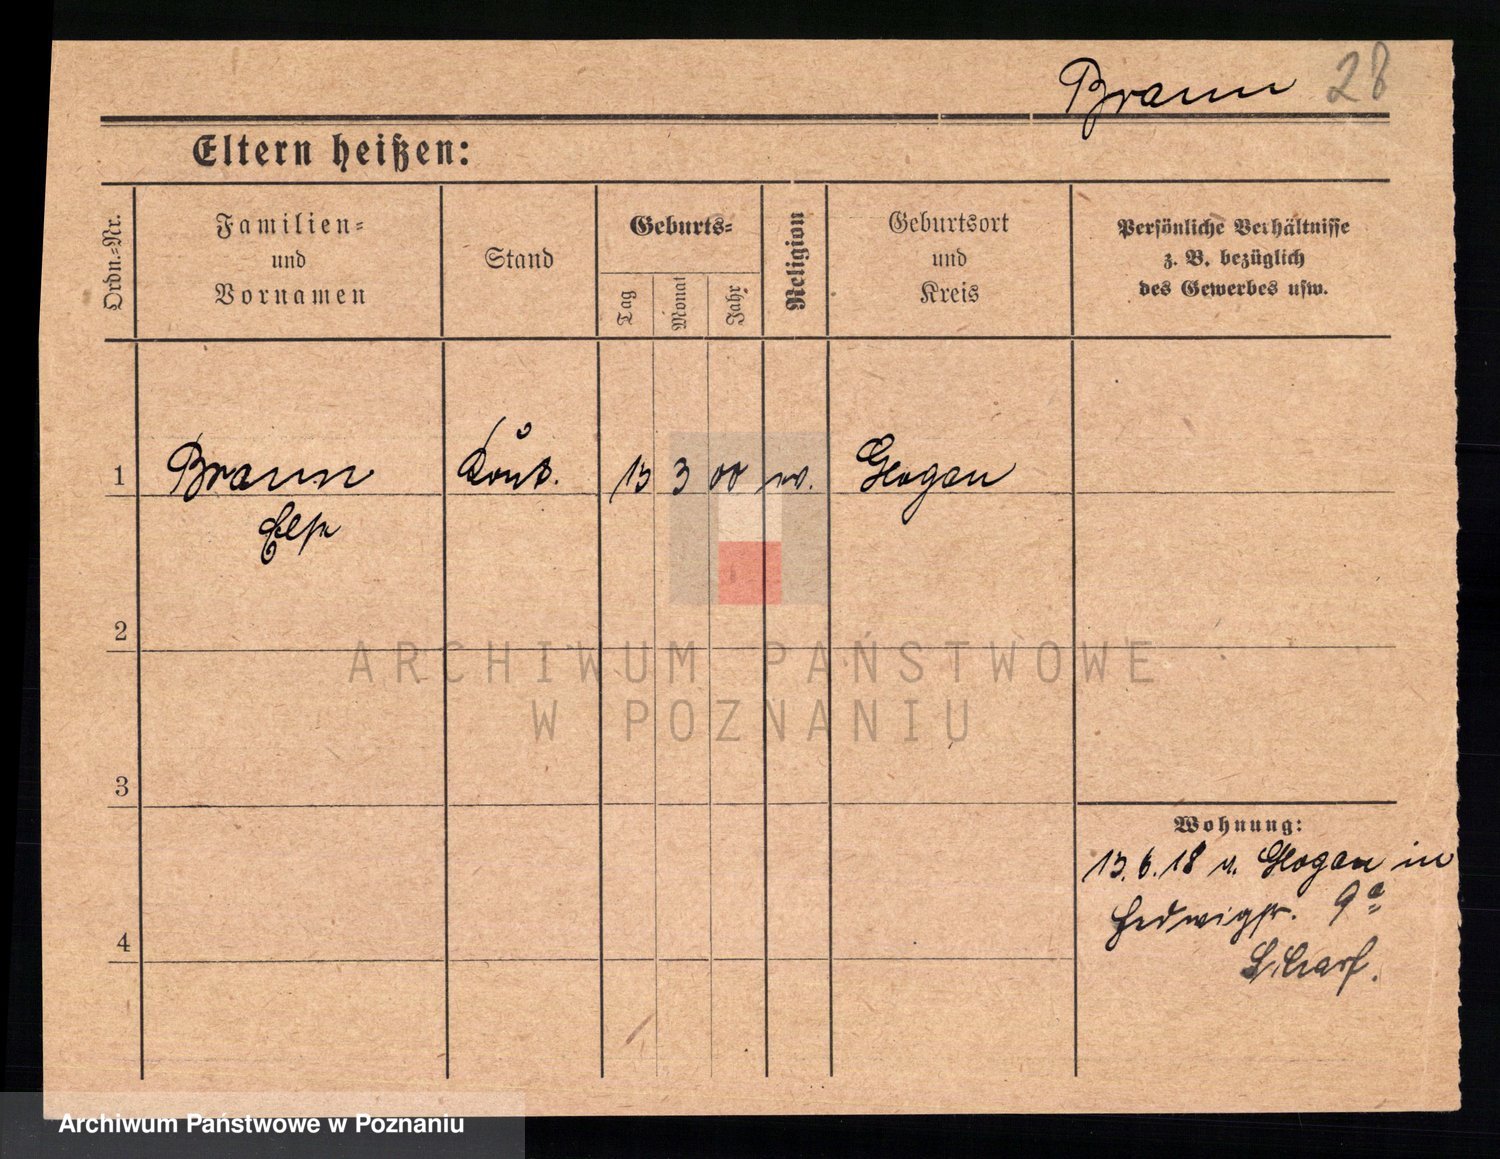 Braun 28
Eltern heißen:
Ordn.-Nr.
Familien-
und
Vornamen
Stand
Geburts-
Tag
Monat
Jahr
Religion
Geburtsort
und
Kreis
Persönliche Verhältnisse
z. B. bezüglich
des Gewerbes usw.
1 Braun 3 00 Glogau
Else
2
ARCHIWUM PAŃSTWOWE
W POZNANIU
3
Wohnung:
6. 18 v. Glogau in
Hedwigstr. 9a
Scharf.
4
Archiwum Państwowe w Poznaniu